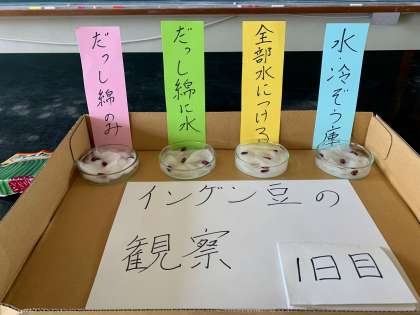 だっし綿のみ
だっし綿に水
全部水につける
水・冷ぞう庫
インゲン豆の
観察
1日目